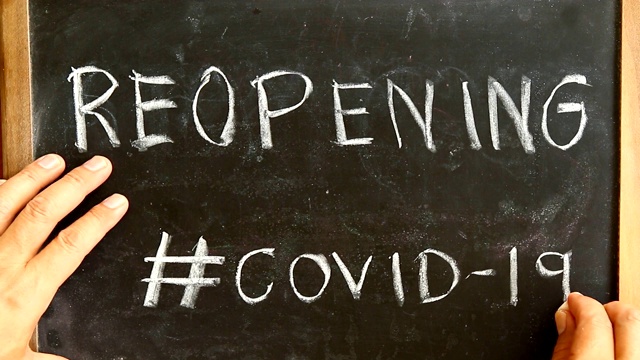 REOPENING
#COVID-19